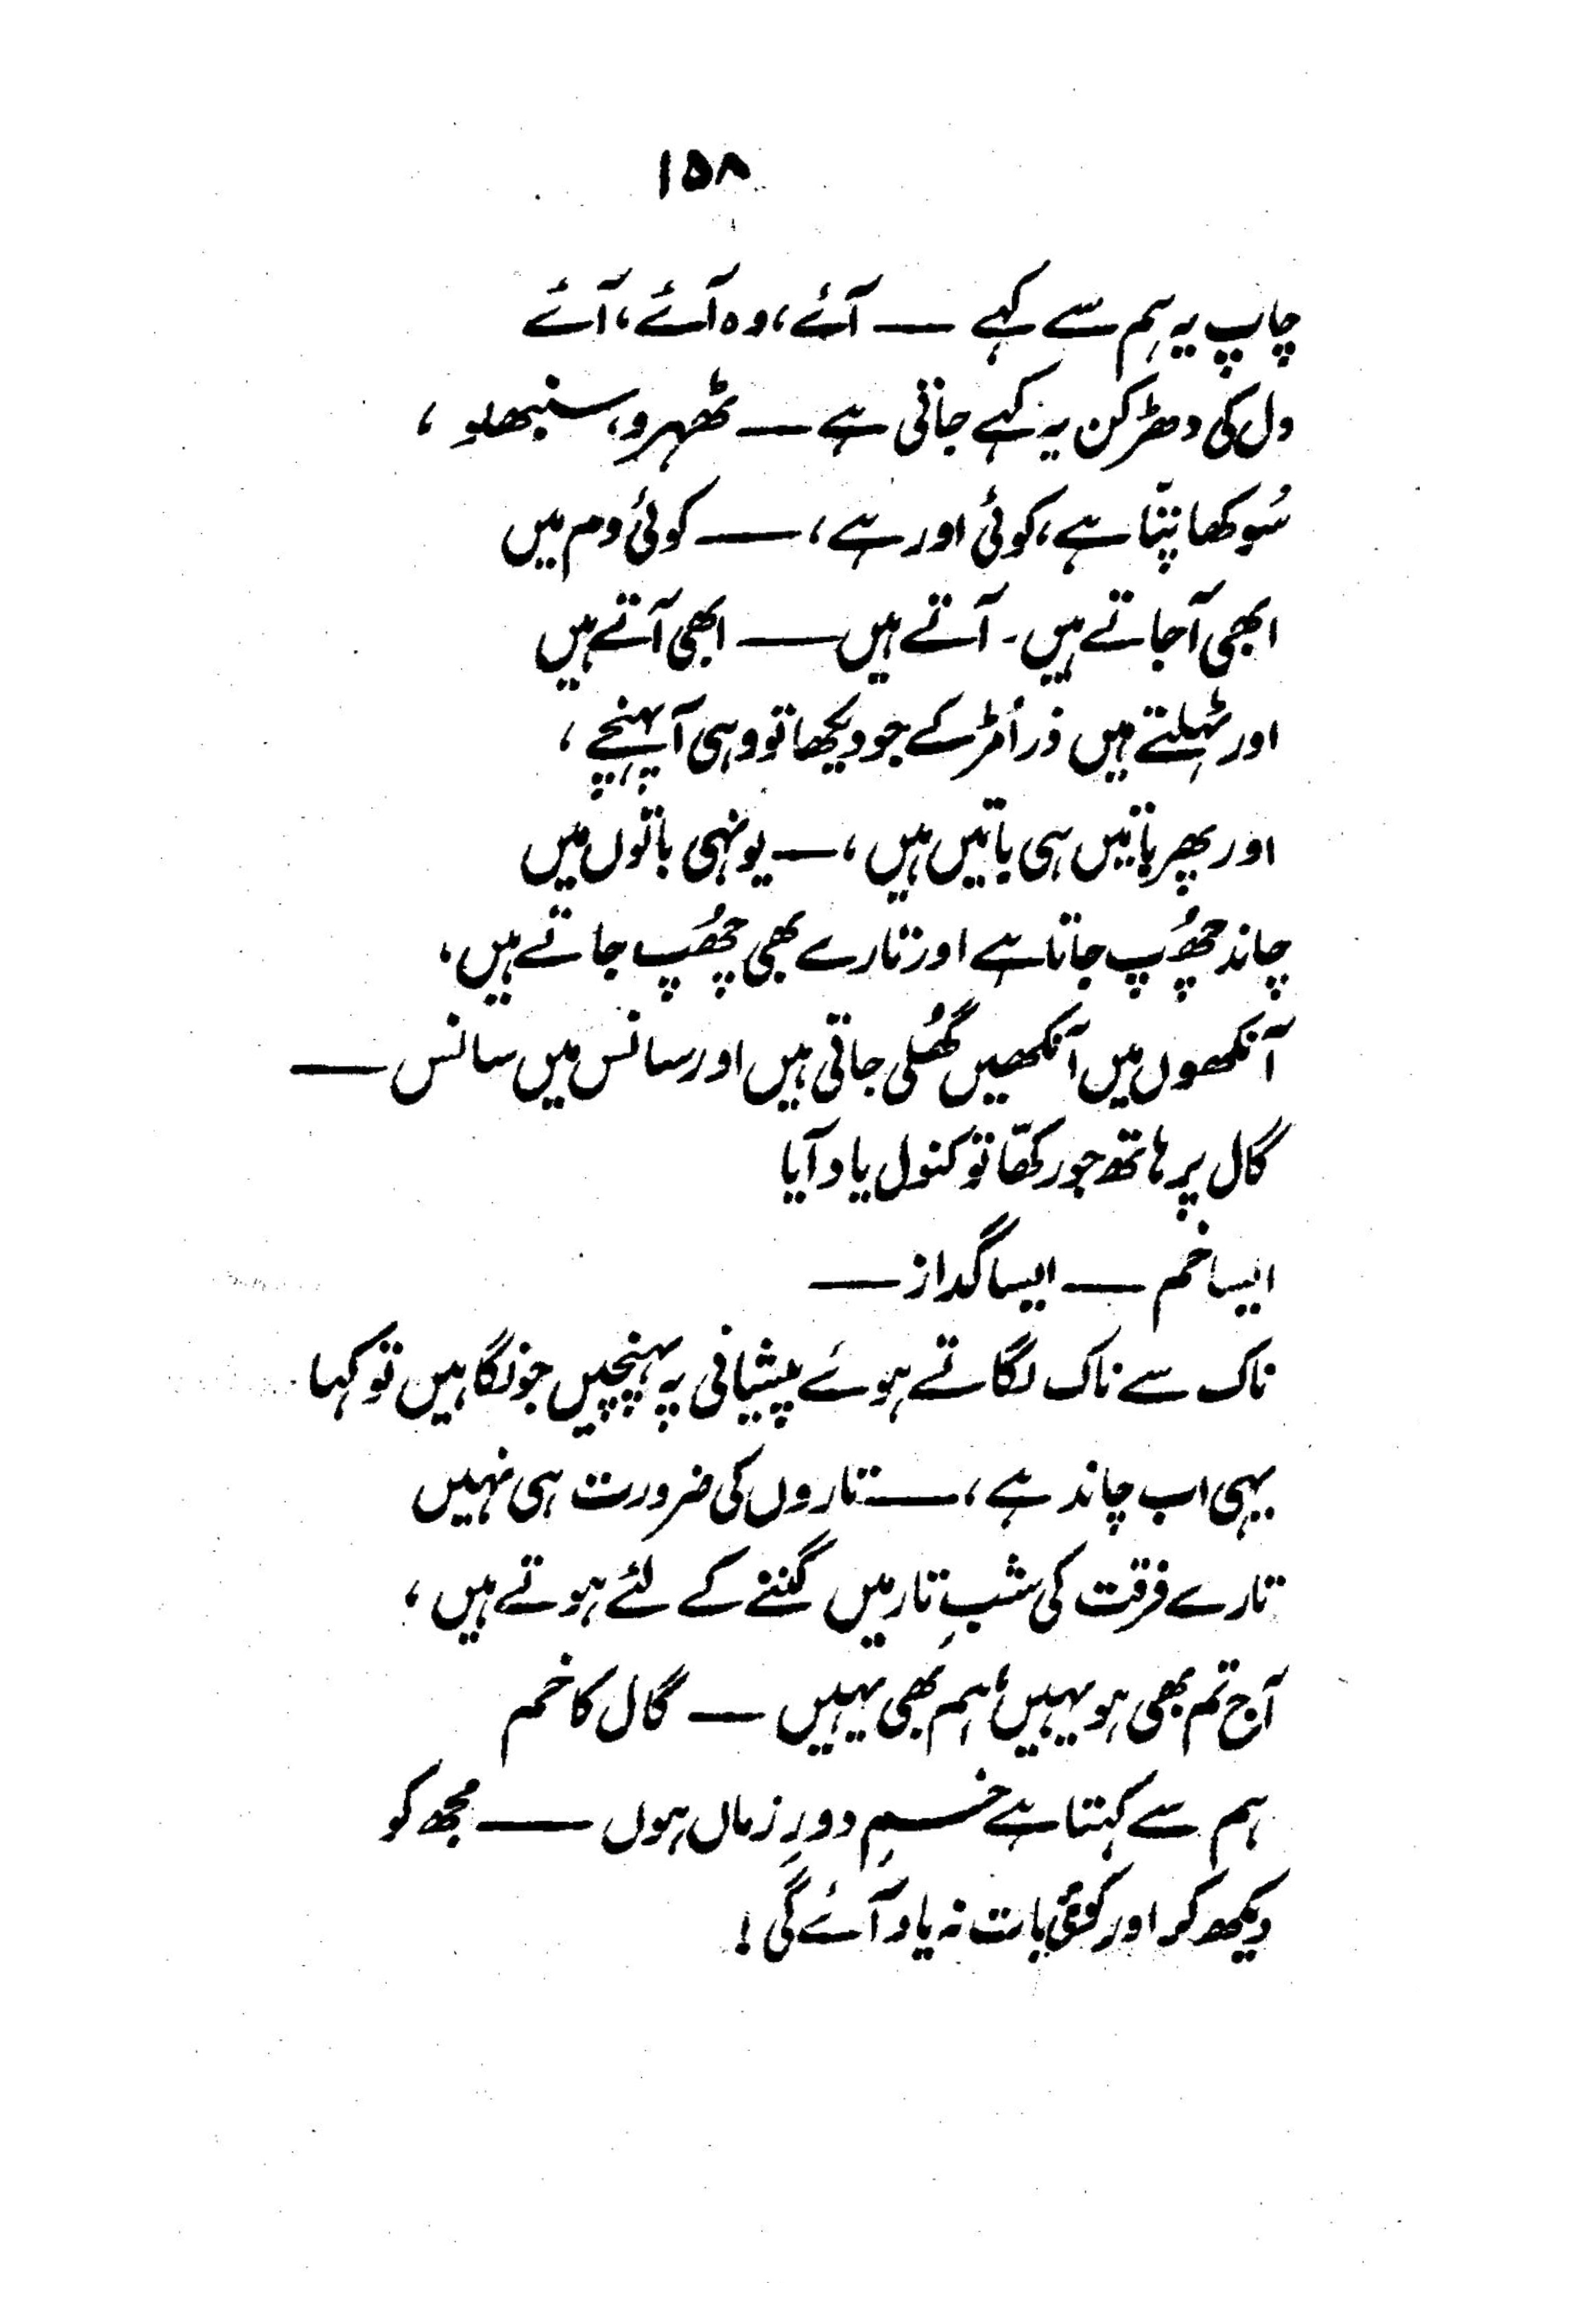 ۱۵۸
چاپ یہ ہم سے کہے — آئے، وہ آئے، آئے
دل کی دھڑکن یہ کہے جاتی ہے — ٹھہرو، سنبھلو،
سُوکھا پتّا ہے، کوئی اور ہے، — کوئی دم میں
ابھی آجاتے ہیں۔ آتے ہیں — ابھی آتے ہیں
اور ٹہلتے میں ذرا مُڑ کے جو دیکھا تو وہی آ پہنچے،
اور پھر باتیں ہی باتیں ہیں، — یونہی باتوں میں
چاند چھُپ جاتا ہے اور تارے بھی چھُپ جاتے ہیں،
آنکھوں میں آنکھیں گھُلی جاتی ہیں اور سانس میں سانس —
گال پر ہاتھ جو رکھّا تو کنول یاد آیا
ایسا خم — ایسا گداز —
ناک سے ناک لگاتے ہوئے پیشانی پہ پہنچیں جو نگاہیں تو کہا
یہی اب چاند ہے، — ستاروں کی ضرورت ہی نہیں
تارے فرقت کی شبِ تار میں گننے کے لئے ہوتے ہیں،
آج تم بھی ہو یہیں، ہم بھی یہیں — گال کا خم
ہم سے کہتا ہے خمِ دورِ زماں ہوں — مجھ کو
دیکھ کر اور کوئی بات نہ یاد آئے گی!